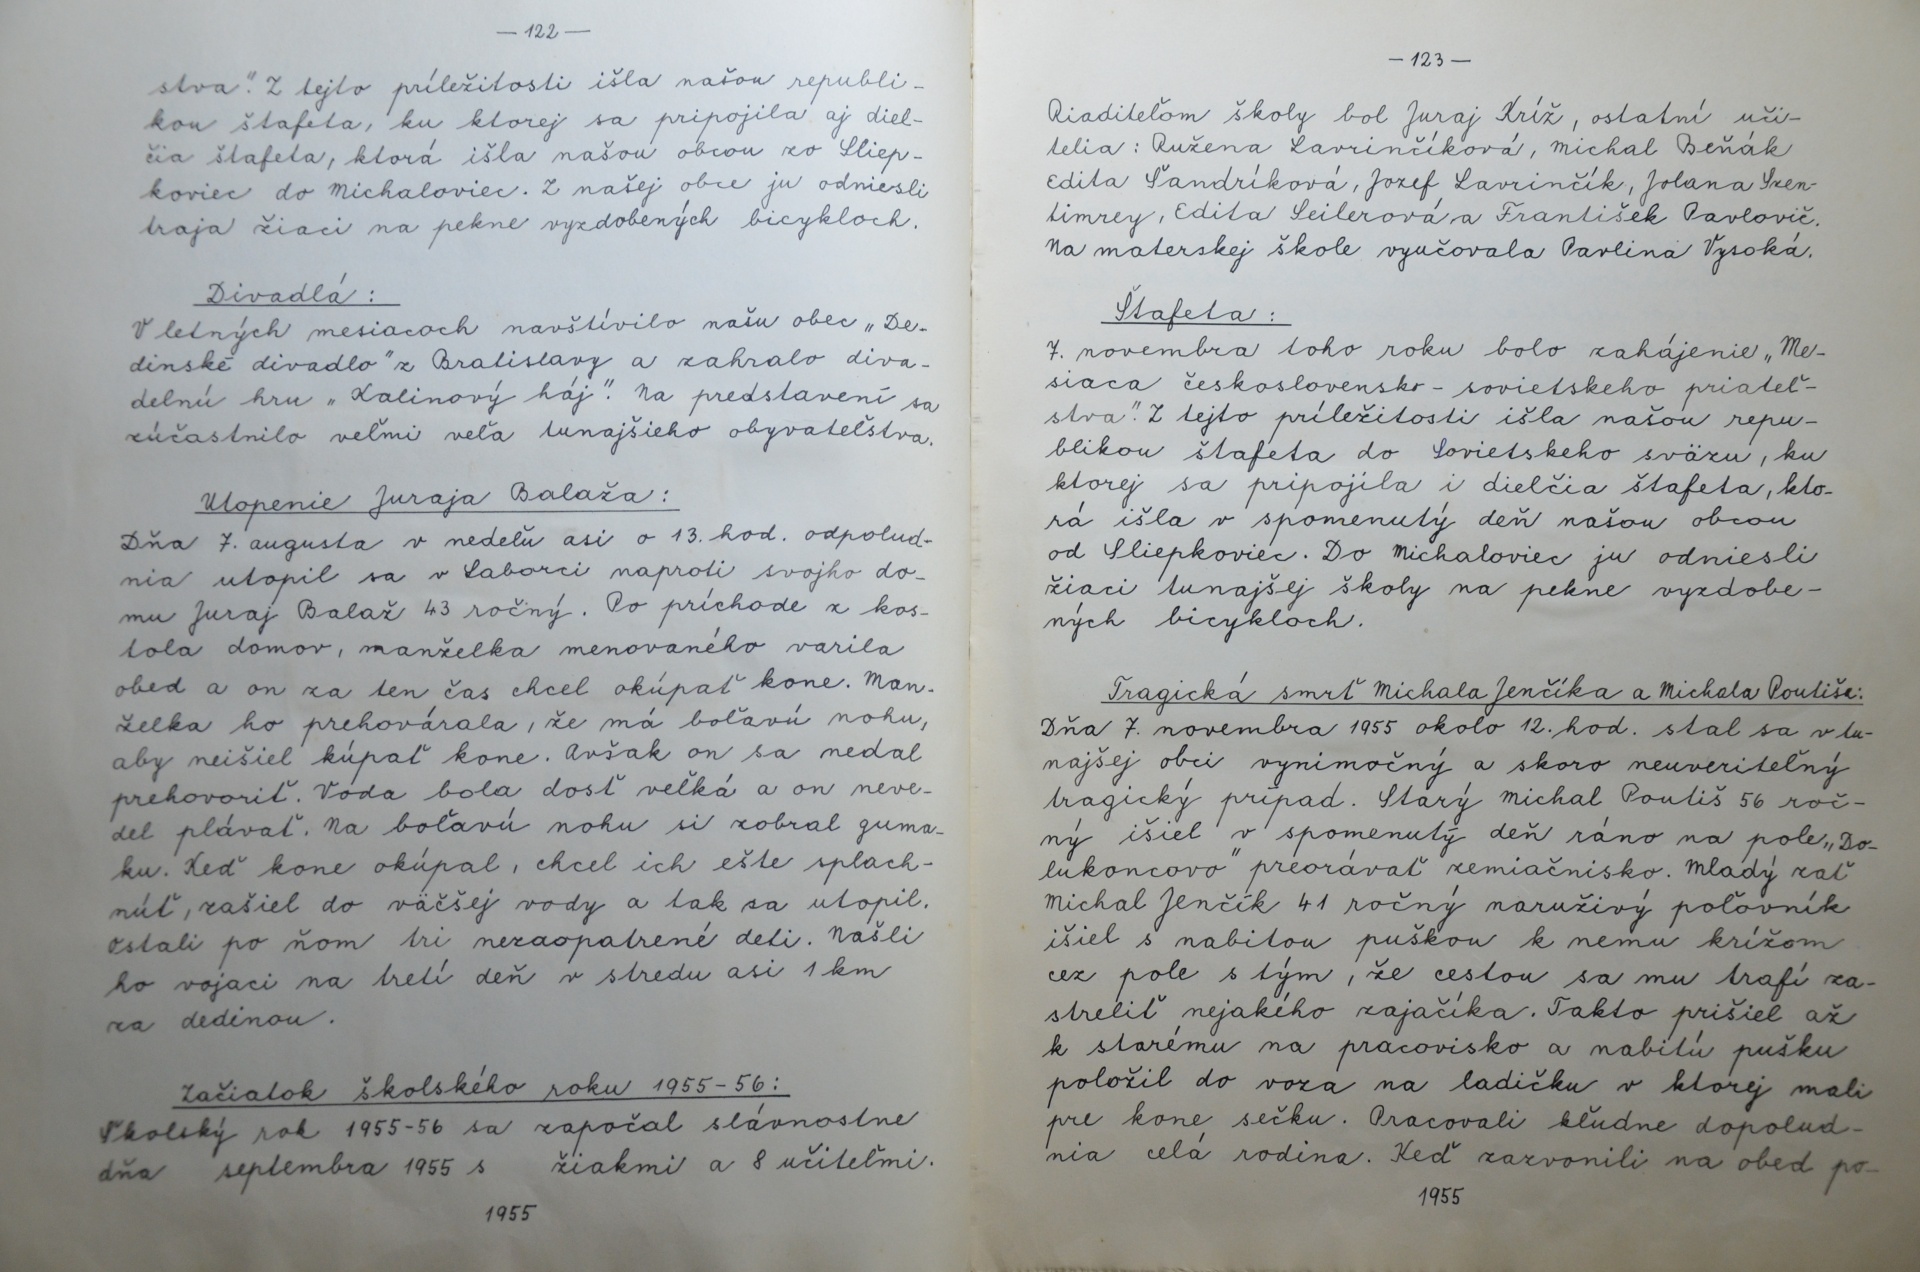 — 122 —
stva". Z tejto príležitosti išla našou republi-
kou štafeta, ku ktorej sa pripojila aj diel-
čia štafeta, ktorá išla našou obcou zo Sliep-
koviec do Michaloviec. Z našej obce ju odniesli
traja žiaci na pekne vyzdobených bicykloch.
Divadlá :
V letných mesiacoch navštívilo našu obec „De-
dinské divadlo" z Bratislavy a zahralo diva-
delnú hru „Kalinový háj". Na predstavení sa
zúčastnilo veľmi veľa tunajšieho obyvateľstva.
Utopenie Juraja Balaža :
Dňa 7. augusta v nedeľu asi o 13. hod. odpolud-
nia utopil sa v Laborci naproti svojho do-
mu Juraj Balaž 43 ročný. Po príchode z kos-
tola domov, manželka menovaného varila
obed a on za ten čas chcel okúpať kone. Man-
želka ho prehovárala, že má boľavú nohu,
aby neišiel kúpať kone. Avšak on sa nedal
prehovoriť. Voda bola dosť veľká a on neve-
del plávať. Na boľavú nohu si zobral guma-
ku. Keď kone okúpal, chcel ich ešte splach-
núť, zašiel do väčšej vody a tak sa utopil.
Ostali po ňom tri nezaopatrené deti. Našli
ho vojaci na tretí deň v stredu asi 1 km
za dedinou.
Začiatok školského roku 1955-56 :
Školský rok 1955-56 sa započal slávnostne
dňa septembra 1955 s žiakmi a 8 učiteľmi.
1955
— 123 —
Riaditeľom školy bol Juraj Kríž, ostatní uči-
telia : Ružena Lavrinčíková, Michal Beňák
Edita Šandríková, Jozef Lavrinčík, Jolana Szen-
timrey, Edita Seilerová a František Pavlovič.
Na materskej škole vyučovala Pavlína Vysoká.
Štafeta :
7. novembra toho roku bolo zahájenie „Me-
siaca československo - sovietskeho priateľ-
stva". Z tejto príležitosti išla našou repu-
blikou štafeta do Sovietskeho sväzu, ku
ktorej sa pripojila i dielčia štafeta, kto-
rá išla v spomenutý deň našou obcou
od Sliepkoviec. Do Michaloviec ju odniesli
žiaci tunajšej školy na pekne vyzdobe-
ných bicykloch.
Tragická smrť Michala Jenčíka a Michala Poutiša:
Dňa 7. novembra 1955 okolo 12. hod. stal sa v tu-
najšej obci vynimočný a skoro neuveriteľný
tragický prípad. Starý Michal Poutiš 56 roč-
ný išiel v spomenutý deň ráno na pole „Do-
lukoncovo" preorávať zemiačnisko. Mladý zať
Michal Jenčík 41 ročný naruživý poľovník
išiel s nabitou puškou k nemu krížom
cez pole s tým, že cestou sa mu trafí za-
streliť nejakého zajačíka. Takto prišiel až
k starému na pracovisko a nabitú pušku
položil do voza na ladičku v ktorej mali
pre kone sečku. Pracovali kľudne dopolud-
nia celá rodina. Keď zazvonili na obed po-
1955